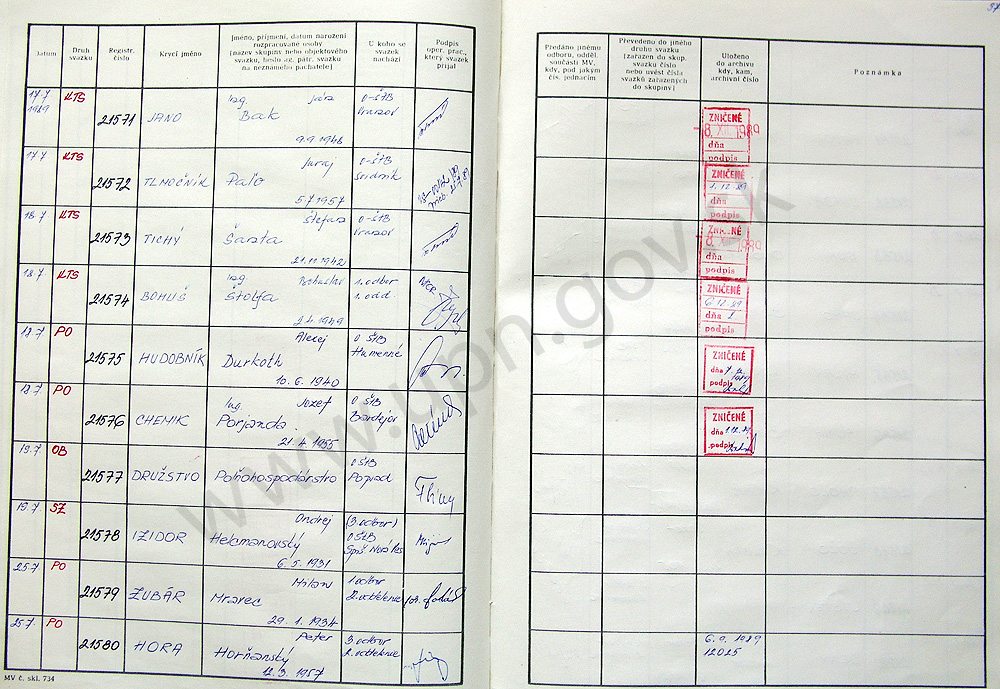 57
Datum
Druh svazku
Registr. číslo
Krycí jméno
Jméno, příjmení, datum narození
rozpracované osoby
(název skupiny nebo objektového
svazku, heslo ag. pátr. svazku
na neznámého pachatele)
U koho se
svazek
nachází
Podpis
oper. prac.,
který svazek
přijal
Předáno jinému
odboru, odděl.
součásti MV,
kdy, pod jakým
čj. jednacím
Převedeno do jiného
druhu svazku
[zařazen do skup.
svazku číslo
nebo uvést čísla
svazků zařazených
do skupiny]
Uloženo
do archivu
kdy, kam,
archivní číslo
Poznámka
17.7 1989 KTS 21571 JANO Ing. Bak 9.9.1946 O-ŠTB
ZNIČENÉ
8. XII. 1989
dňa
podpis
17.7 KTS 21572 TLMOČNÍK Juraj Paľo 5.7.1957 O-ŠTB Svidník
ZNIČENÉ
1.12.89
dňa
podpis
18.7 KTS 21573 TICHÝ Štefan 21.11.1942 O-ŠTB
ZNIČENÉ
8. XII. 1989
dňa
podpis
18.7 KTS 21574 BOHUŠ Ing. Bohuslav Štolfa 2.4.1949 1. odbor 1. odd.
ZNIČENÉ
6.12.89
dňa
podpis
18.7 PO 21575 HUDOBNÍK Alexej Durkoth 10.6.1940 O ŠTB Humenné
ZNIČENÉ
dňa
podpis
18.7 PO 21576 CHEMIK Ing. Jozef Porjanda 21.4.1955 O ŠTB Bardejov
ZNIČENÉ
dňa 1.12.89
podpis
19.7 OB 21577 DRUŽSTVO Poľnohospodárstvo O ŠTB Poprad
19.7 SZ 21578 IZIDOR Ondrej Hekmanovský 6.5.1931 (3 odbor) O ŠTB Spiš Nová Ves
25.7 PO 21579 ZUBÁR Milan Mravec 29.1.1934 1 odbor 2. oddelenie
25.7 PO 21580 HORA Peter Horňanský 12.3.1957 3 odbor 2. oddelenie
6.9.1989
12025
MV č. skl. 734
www.upn.gov.sk